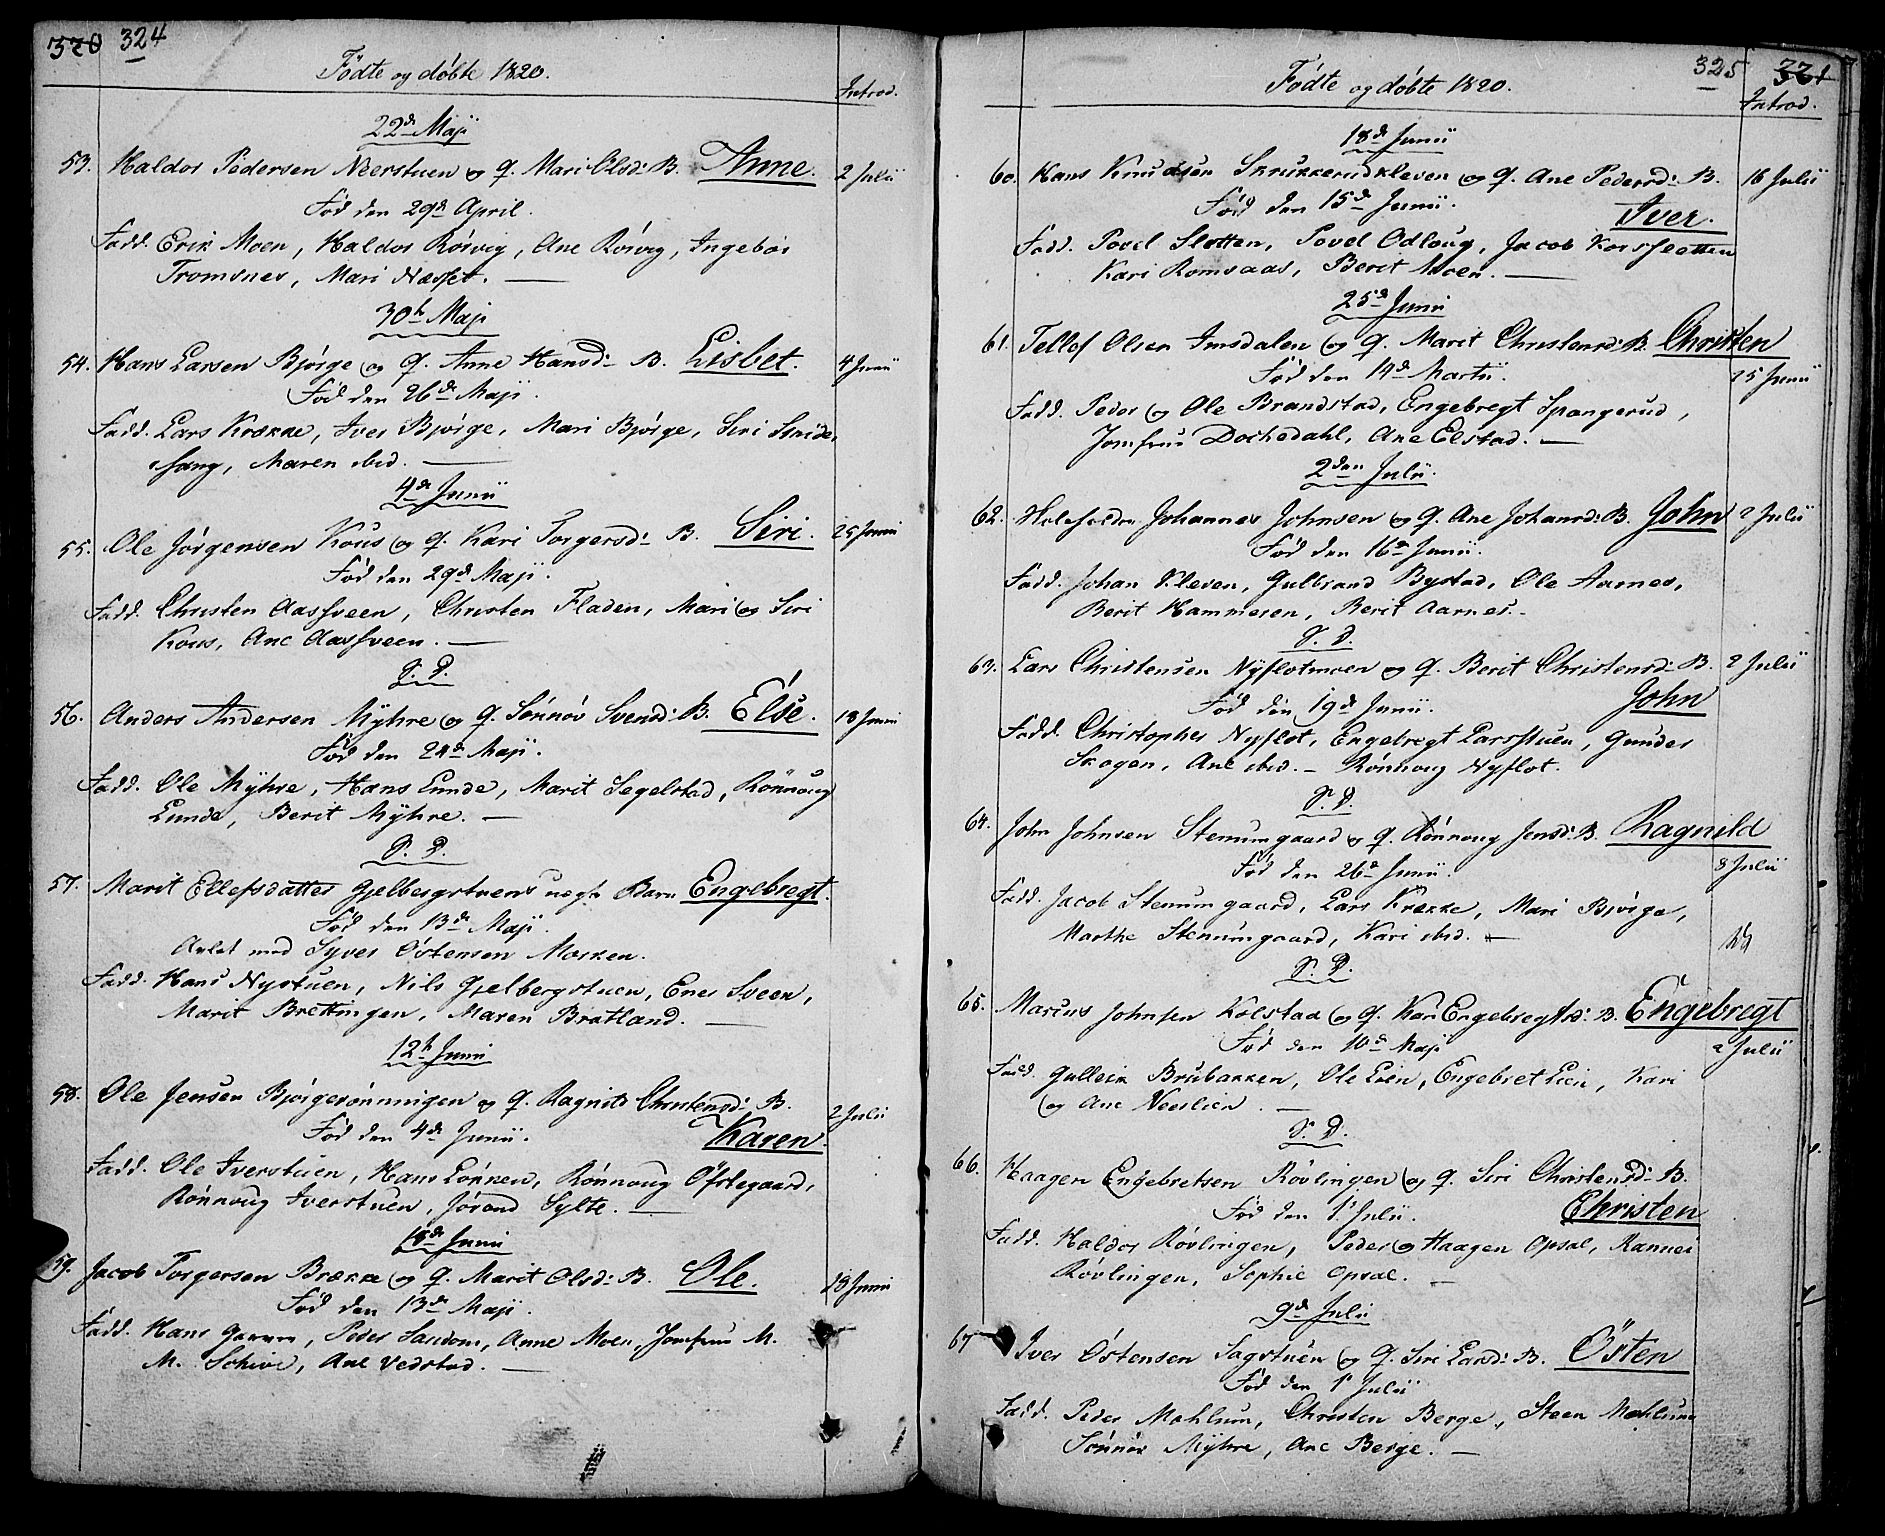 320 324
Födte og döbte 1820.
Introd.
22de Maji
53. Haldor Pedersen Neerstuen og q. Mari Olsd: B. Anne. 2 Julii
Föd den 29de April.
Fadd. Erik Moen, Haldor Rörvig, Ane Rörvig, Ingebor
Tromsnes, Mari Næsset.
30te Maji
54. Hans Larsen Björge og q. Anne Hansd: B. Lisbet. 4 Junii
Föd den 26de Maji.
Fadd. Lars Krække, Iver Björge, Mari Björge, Siri
Maren ibid.
4de Junii
55. Ole Jörgensen Kous og q. Kari Torgersd: B. Siri. 25 Junii
Föd den 29de Maji.
Fadd. Christen Aassveen, Christen Fladen, Mari og Siri
Kous, Ane Aassveen.
S. D.
56. Anders Andersen Myhre og q. Sönnöv Svensd: B. Else. 18 Junii
Föd den 24de Maji.
Fadd. Ole Myhre, Hans Lunde, Marit Segelstad, Rönnoug
Lunde, Berit Myhre.
S. D.
57. Marit Ellefsdatter Gjelbergstuens uægte Barn Engebregt.
Föd den 13de Maji.
Avlet med Syver Östensen Morken.
Fadd. Hans Nystuen, Nils Gjelbergstuen, Ener Sveen,
Marit Brettingen, Maren Bratland.
12te Junii
58. Ole Jensen Björgerönningen og q. Ragnild Christensd: B. 2 Julii
Föd den 4de Junii. Karen.
Fadd. Ole Iverstuen, Hans Lönken, Rönnoug Öfstegaard,
Rönnoug Iverstuen, Jörand Sylte.
18de Junii
59. Jacob Torgersen Brække og q. Marit Olsd: B. Ole. 18 Junii
Föd den 13de Maji.
Fadd. Hans Peder Sandom, Anne Moen, Jomfrue M.
M. Schive, Ane Vedstad.
325 321
Födte og döbte 1820.
Introd.
18de Junii
60. Hans Knudsen Skrukkerudkleven og q. Ane Pedersd: B. 16 Julii
Föd den 15de Junii. Iver.
Fadd. Povel Sletten, Povel Odloug, Jacob Korssletten
Kari Romsaas, Berit Moen.
25de Junii
61. Tellef Olsen Imsdalen og q. Marit Christensd: B. Christen
Föd den 14de Martii. 25 Junii
Fadd. Peder og Ole Brandstad, Engebregt Spangerud,
Jomfrue Dochedahl, Ane Elstad.
2den Julii.
62. Johannes Johnsen og q. Ane Johansd: B. John 2 Julii
Föd den 16de Junii.
Fadd. Johan Kleven, Gulbrand Bystad, Ole Aarnes,
Berit Hammeren, Berit Aarnes.
S. D.
63. Lars Christensen Nyflotmoen og q. Berit Christensd: B. 2 Julii
Föd den 19de Junii. John
Fadd. Christopher Nyflot, Engebregt Larsstuen, Gunder
Skogen, Ane ibid. Rönnoug Nyflot.
S. D.
64. John Johnsen Stenumgaard og q. Rönnoug Jensd: B. Ragnild
Föd den 26de Junii. 8 Julii
Fadd. Jacob Stenumgaard, Lars Krække, Mari Björge,
Marthe Stenumgaard, Kari ibid.
S. D.
65. Marius Johnsen Kolstad og q. Kari Engebregtsd: B. Engebregt
Föd den 10de Maji 2 Julii
Fadd. Gulleik Brubakken, Ole Lien, Engebret Lien, Kari
og Ane Neerlien.
S. D.
66. Haagen Engebretsen Rövlingen og q. Siri Christensd: B.
Föd den 1te Julii. Christen
Fadd. Haldor Rövlingen, Peder og Haagen Opsal, Rannei
Rövlingen, Sophie Opsal.
9de Julii
67 Iver Östensen Sagstuen og q. Siri Larsd: B. Östen
Föd den 1te Julii
Fadd. Peder Mæhlum, Christen Berge, Steen Mæhlum
Sönnöv Myhre, Ane Berge.